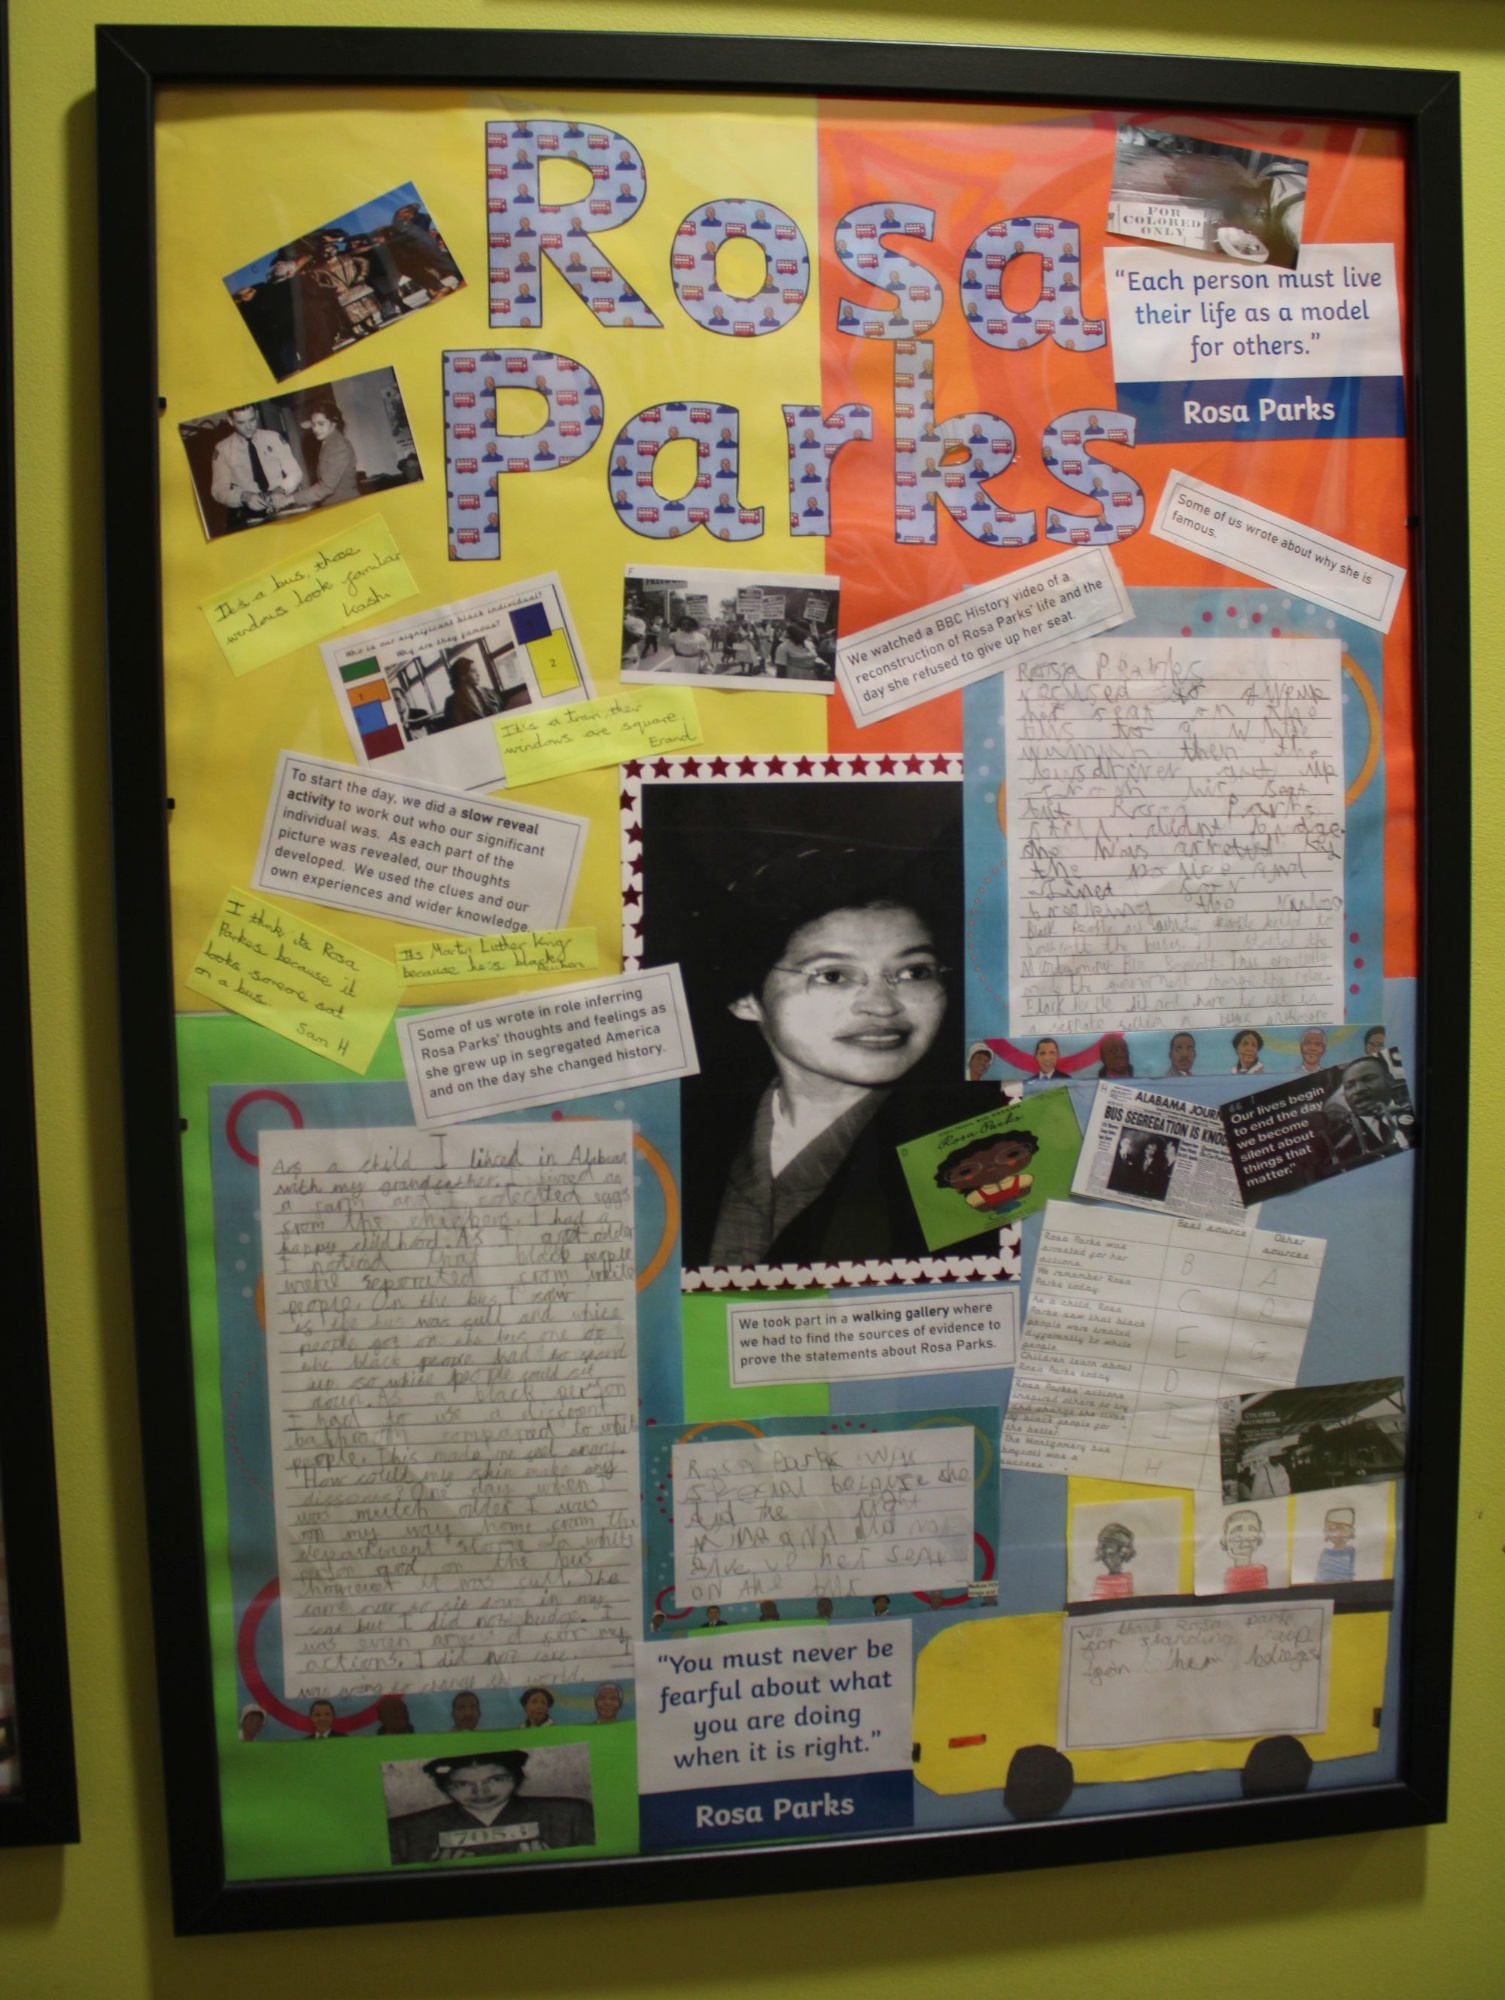 Rosa
Parks
FOR
COLORED
ONLY
"Each person must live
their life as a model
for others."
Rosa Parks
Some of us wrote about why she is
famous.
It's a bus, those
windows look familar
Kashi
Who is our significant black individual?
Why are they famous?
1
2
It's a train, their
windows are square.
Erand
F
We watched a BBC History video of a
reconstruction of Rosa Parks' life and the
day she refused to give up her seat.
To start the day, we did a slow reveal
activity to work out who our significant
individual was. As each part of the
picture was revealed, our thoughts
developed. We used the clues and our
own experiences and wider knowledge.
I think its Rosa
Parkes because it
looks someone sat
on a bus.
Sam H
Its Martin Luther King
because he's black
Reuben
Some of us wrote in role inferring
Rosa Parks' thoughts and feelings as
she grew up in segregated America
and on the day she changed history.
Rosa Parks
refused to give up
her seat on the
bus to a white
then the
busdriver
but Rosa Parks
still didnt budge.
she was arrested by
the police and
fined for
breaking the
As a child I lived in Alabama
with my grandfather. I lived on
a farm and I colected eggs
from the chickens. I had a
happy childhood. As I got older
I noticed that black people
were seperated from white
people. On the bus I saw
is the bus was full and white
people got on the bus one of
the black people had to stand
up so white people could sit
down. As a black person
I had to use a different
bathroom compared to white
people. This made me feel angry.
How could my skin make any
One day when I
was mutch older I was
on my way home from the
department store a white
person got on the bus
however it was full. She
came over to sit down in my
seat but I did not budge. I
was even arrested for my
actions. I did not care. I
was going to change the world.
D
Rosa Parks
H
ALABAMA JOUR
BUS SEGREGATION IS KNO
Our lives begin
to end the day
we become
silent about
things that
matter."
Best source
Other
sources
Rosa Parks was
arrested for her
actions.
B
A
We remember Rosa
Parks today.
C
As a child, Rosa
Parks saw that black
people were treated
differently to white
people.
E
G
Children learn about
Rosa Parks today
D
Rosa Parks' actions
inspired others to try
and change the lives
of black people for
the better.
I
The Montgomery bus
boycott was a
success.
H
We took part in a walking gallery where
we had to find the sources of evidence to
prove the statements about Rosa Parks.
Rosa Parks was
special because she
did the right
and did not
give up her seat
on the bus
We thank Rosa parks
for standing up
for her
"You must never be
fearful about what
you are doing
when it is right."
Rosa Parks
A
7053